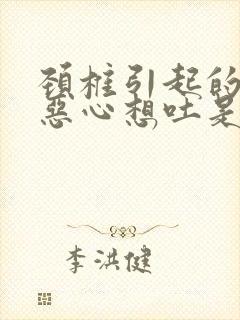 頚椎引起的
惡心想吐是
李洪健